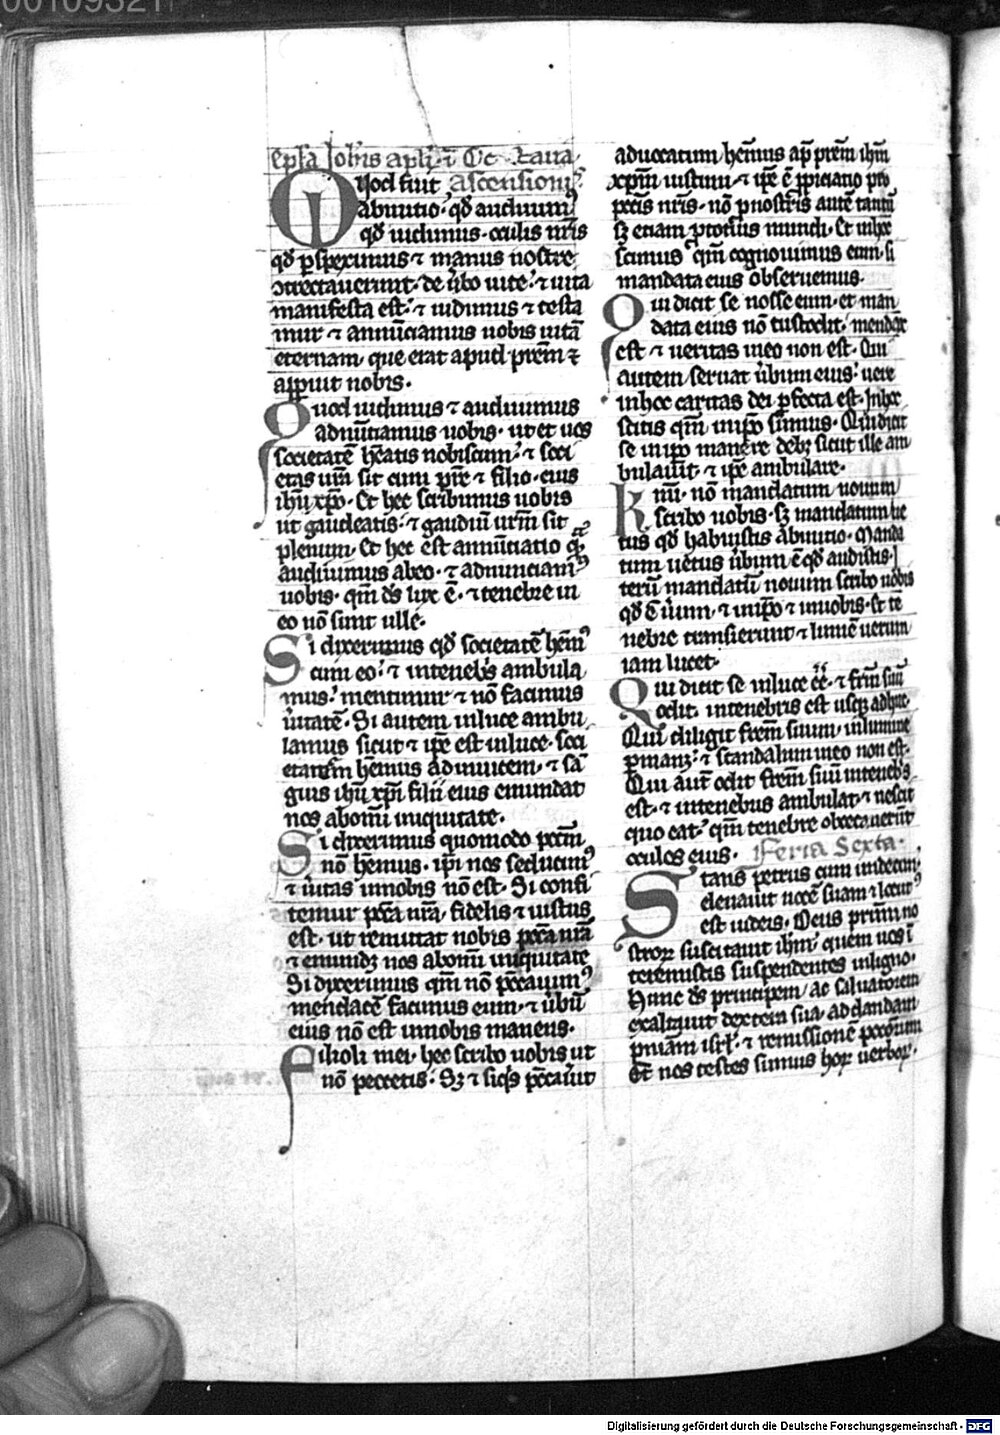 00109321
Epła Iohis apłi ī Octaua
Quod fuit Ascensionis
abinitio· qd̄ audiuimꝰ
qd̄ uidimus· oculis nr̄is
qd̄ ꝑspeximus ⁊ manus nostre
ↄtrectauerunt· de ūbo uite· ⁊ uita
manifesta est· ⁊ uidimus ⁊ testa
mur ⁊ annūciamus uobis uitā
eternam· que erat apud prēm ⁊
apꝑuit nobis·
Quod uidimus ⁊ audiuimus
adnūciamus uobis· ut et uos
societatē hēatis nobiscum· ⁊ soci
etas nrā sit cum pīre ⁊ filio· eius
ihū xp̄o· Et hec scribimus uobis
ut gaudeatis· ⁊ gaudiū urm̄ sit
plenum· Et hec est annūciatio quā
audiuimus abeo· ⁊ adnunciamꝰ
uobis· qm̄ ds̄ lux ē· ⁊ tenebre in
eo nō sunt ulle·
Si dixerimus qd̄ societatē hēmꝰ
cum eo· ⁊ intenebs̄ ambula
mus· mentimur ⁊ nō facimus
ūitatē· Si autem inluce ambu
lamus sicut ⁊ ip̄e est inluce· soci
etatem hēmus adinuicem· ⁊ sā
guis ihū xp̄i filii eius emundat
nos abom̄i iniquitate·
Si dixerimus quomodo pccm̄
nō hēmus· ip̄i nos seducimꝰ
⁊ ūitas innobis nō est· Si confi
temur pccā nrā· fidelis ⁊ iustus
est· ut remittat nobis pccā nrā
⁊ emundꝫ nos abomī iniquitate
Si dixerimus qm̄ nō peccauimꝰ
mendacē facimus eum· ⁊ ūbū
eius nō est innobis manens·
Filioli mei· hec scribo uobis ut
nō peccetis· Sꝫ ⁊ siq̄s peccauīt
aduocatum hēmus ap̄ prēm ihm̄
xpm̄ iustum· ⁊ ip̄e ē ꝓpiciatio pro
pccīs nr̄is· nō ꝓ nostris autē tantū
sꝫ etiam ꝓ totius mundi· Et inhoc
scimus qm̄ cognouimus eum· si
mandata eius obseruemus·
Qui dicit se nosse eum· et man
data eius nō custodit· mendax
est ⁊ ueritas ineo non est· Qui
autem seruat ūbum eius· uere
inhoc caritas dei ꝑfecta est· Inhoc
scitis qm̄ inip̄o sumus· Qui dicit
se inip̄o manere debꝫ sicut ille am
bulauit· ⁊ ip̄e ambulare·
Kmī· nō mandatum nouum
scribo uobis· sꝫ mandatum ue
tus qd̄ habuistis abinitio· Manda
tum uetus ūbum ē qd̄ audistis· I
terū mandatū nouum scribo uobis
qd̄ ē ūum· ⁊ inip̄o ⁊ inuobis· Et tē
nebre transierunt ⁊ lumē uerum
iam lucet·
Qui dicit se inluce ēē· ⁊ frm̄ suū
odit· intenebris est usqꝫ adhuc·
Qui diligit frem̄ suum· inlumine
ꝑmanꝫ· ⁊ scandalum ineo non est·
Qui aut̄ odit frem̄ suū intenebs̄
est· ⁊ intenebris ambulat· ⁊ nescit
quo eat· qm̄ tenebre obcecauerūt
oculos eius· Feria Sexta·
Stans petrus cum undecim·
eleuauit uocē suam ⁊ locutꝰ
est iudeis· Deus prūm no
stroꝝ suscitauit ihm̄· quem uos ī
teremistis suspendentes inligno·
Hunc ds̄ principem/ ac saluatorem
exaltauit dextera sua· addandam
pniām isrł· ⁊ remissionē peccōrum
Et nos testes sumus hoꝝ uerboꝝ·
Digitalisierung gefördert durch die Deutsche Forschungsgemeinschaft - DFG